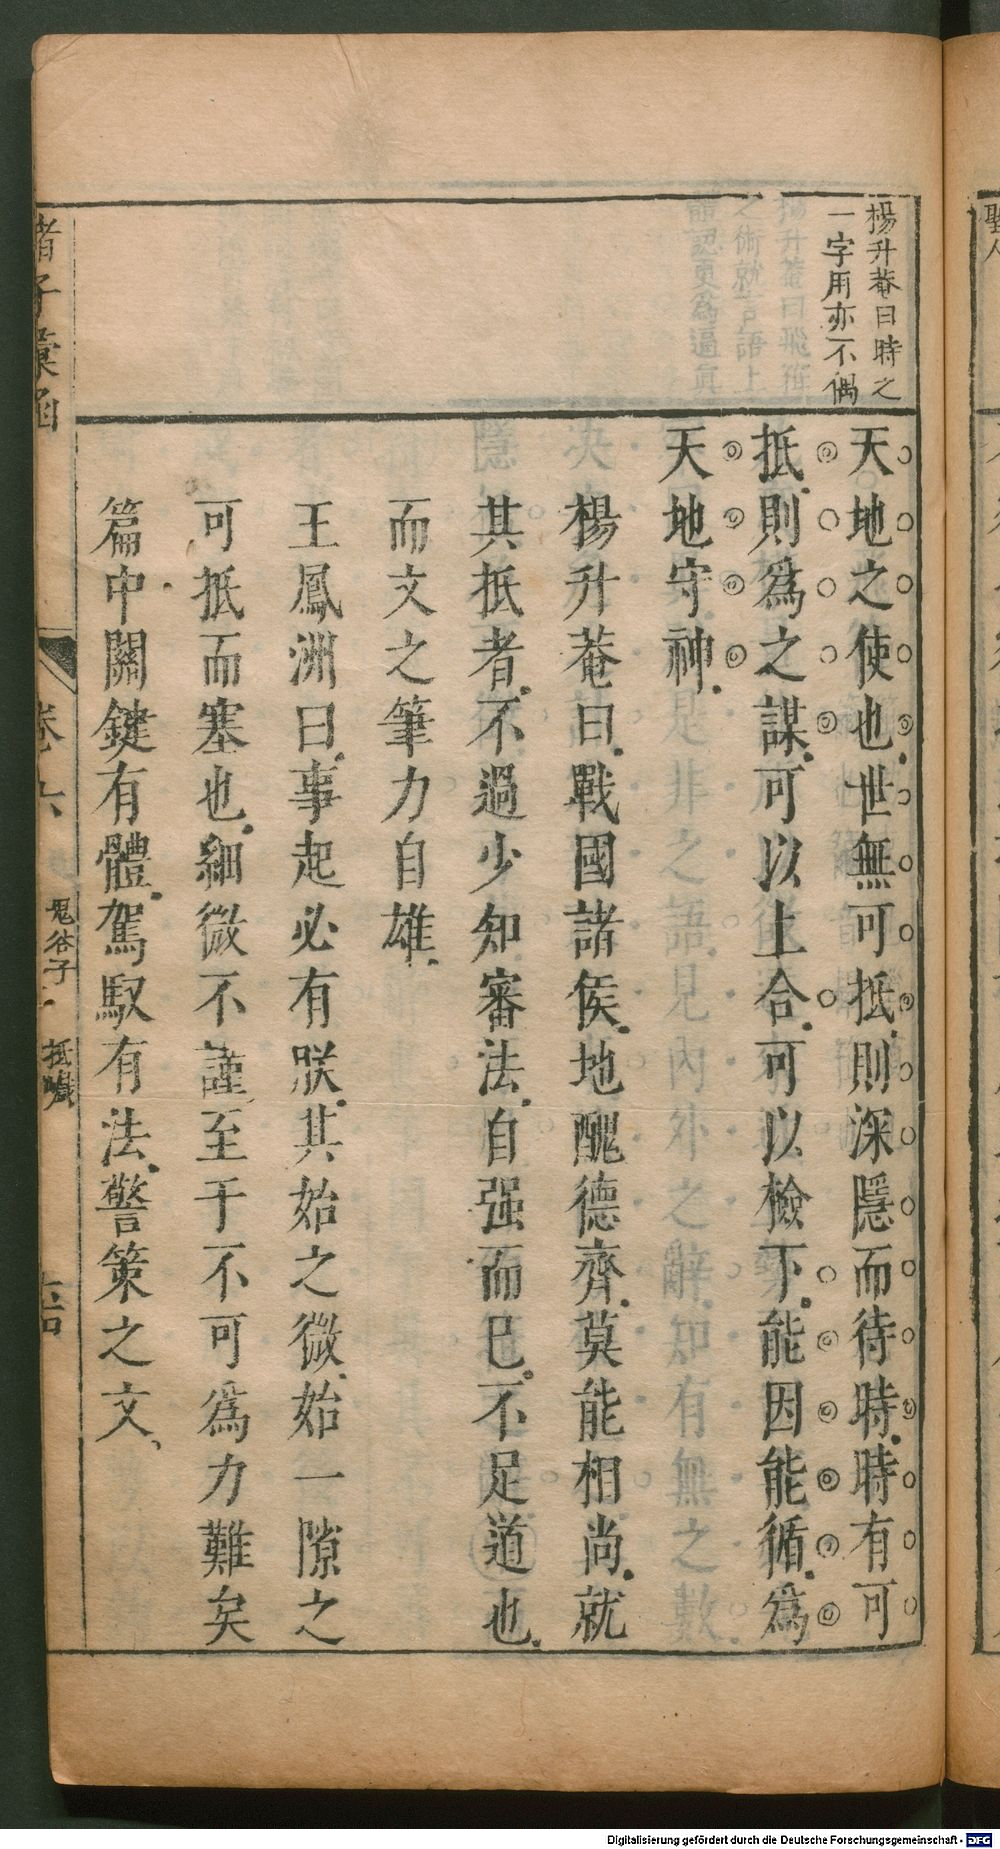 楊升菴曰時之
一字用亦不偶
天地之使也世無可抵則深隱而待時時有可
抵則爲之謀可以上合可以檢下能因能循爲
天地守神
楊升菴曰戰國諸侯地醜德齊莫能相尚就
其抵者不過少知審法自强而已不足道也
而文之筆力自雄
王鳳洲曰事起必有朕其始之微始一隙之
可抵而塞也細微不謹至于不可爲力難矣
篇中關鍵有體駕馭有法警策之文
諸子彙函
卷六
鬼谷子
抵巇
聖人
Digitalisierung gefördert durch die Deutsche Forschungsgemeinschaft - DFG